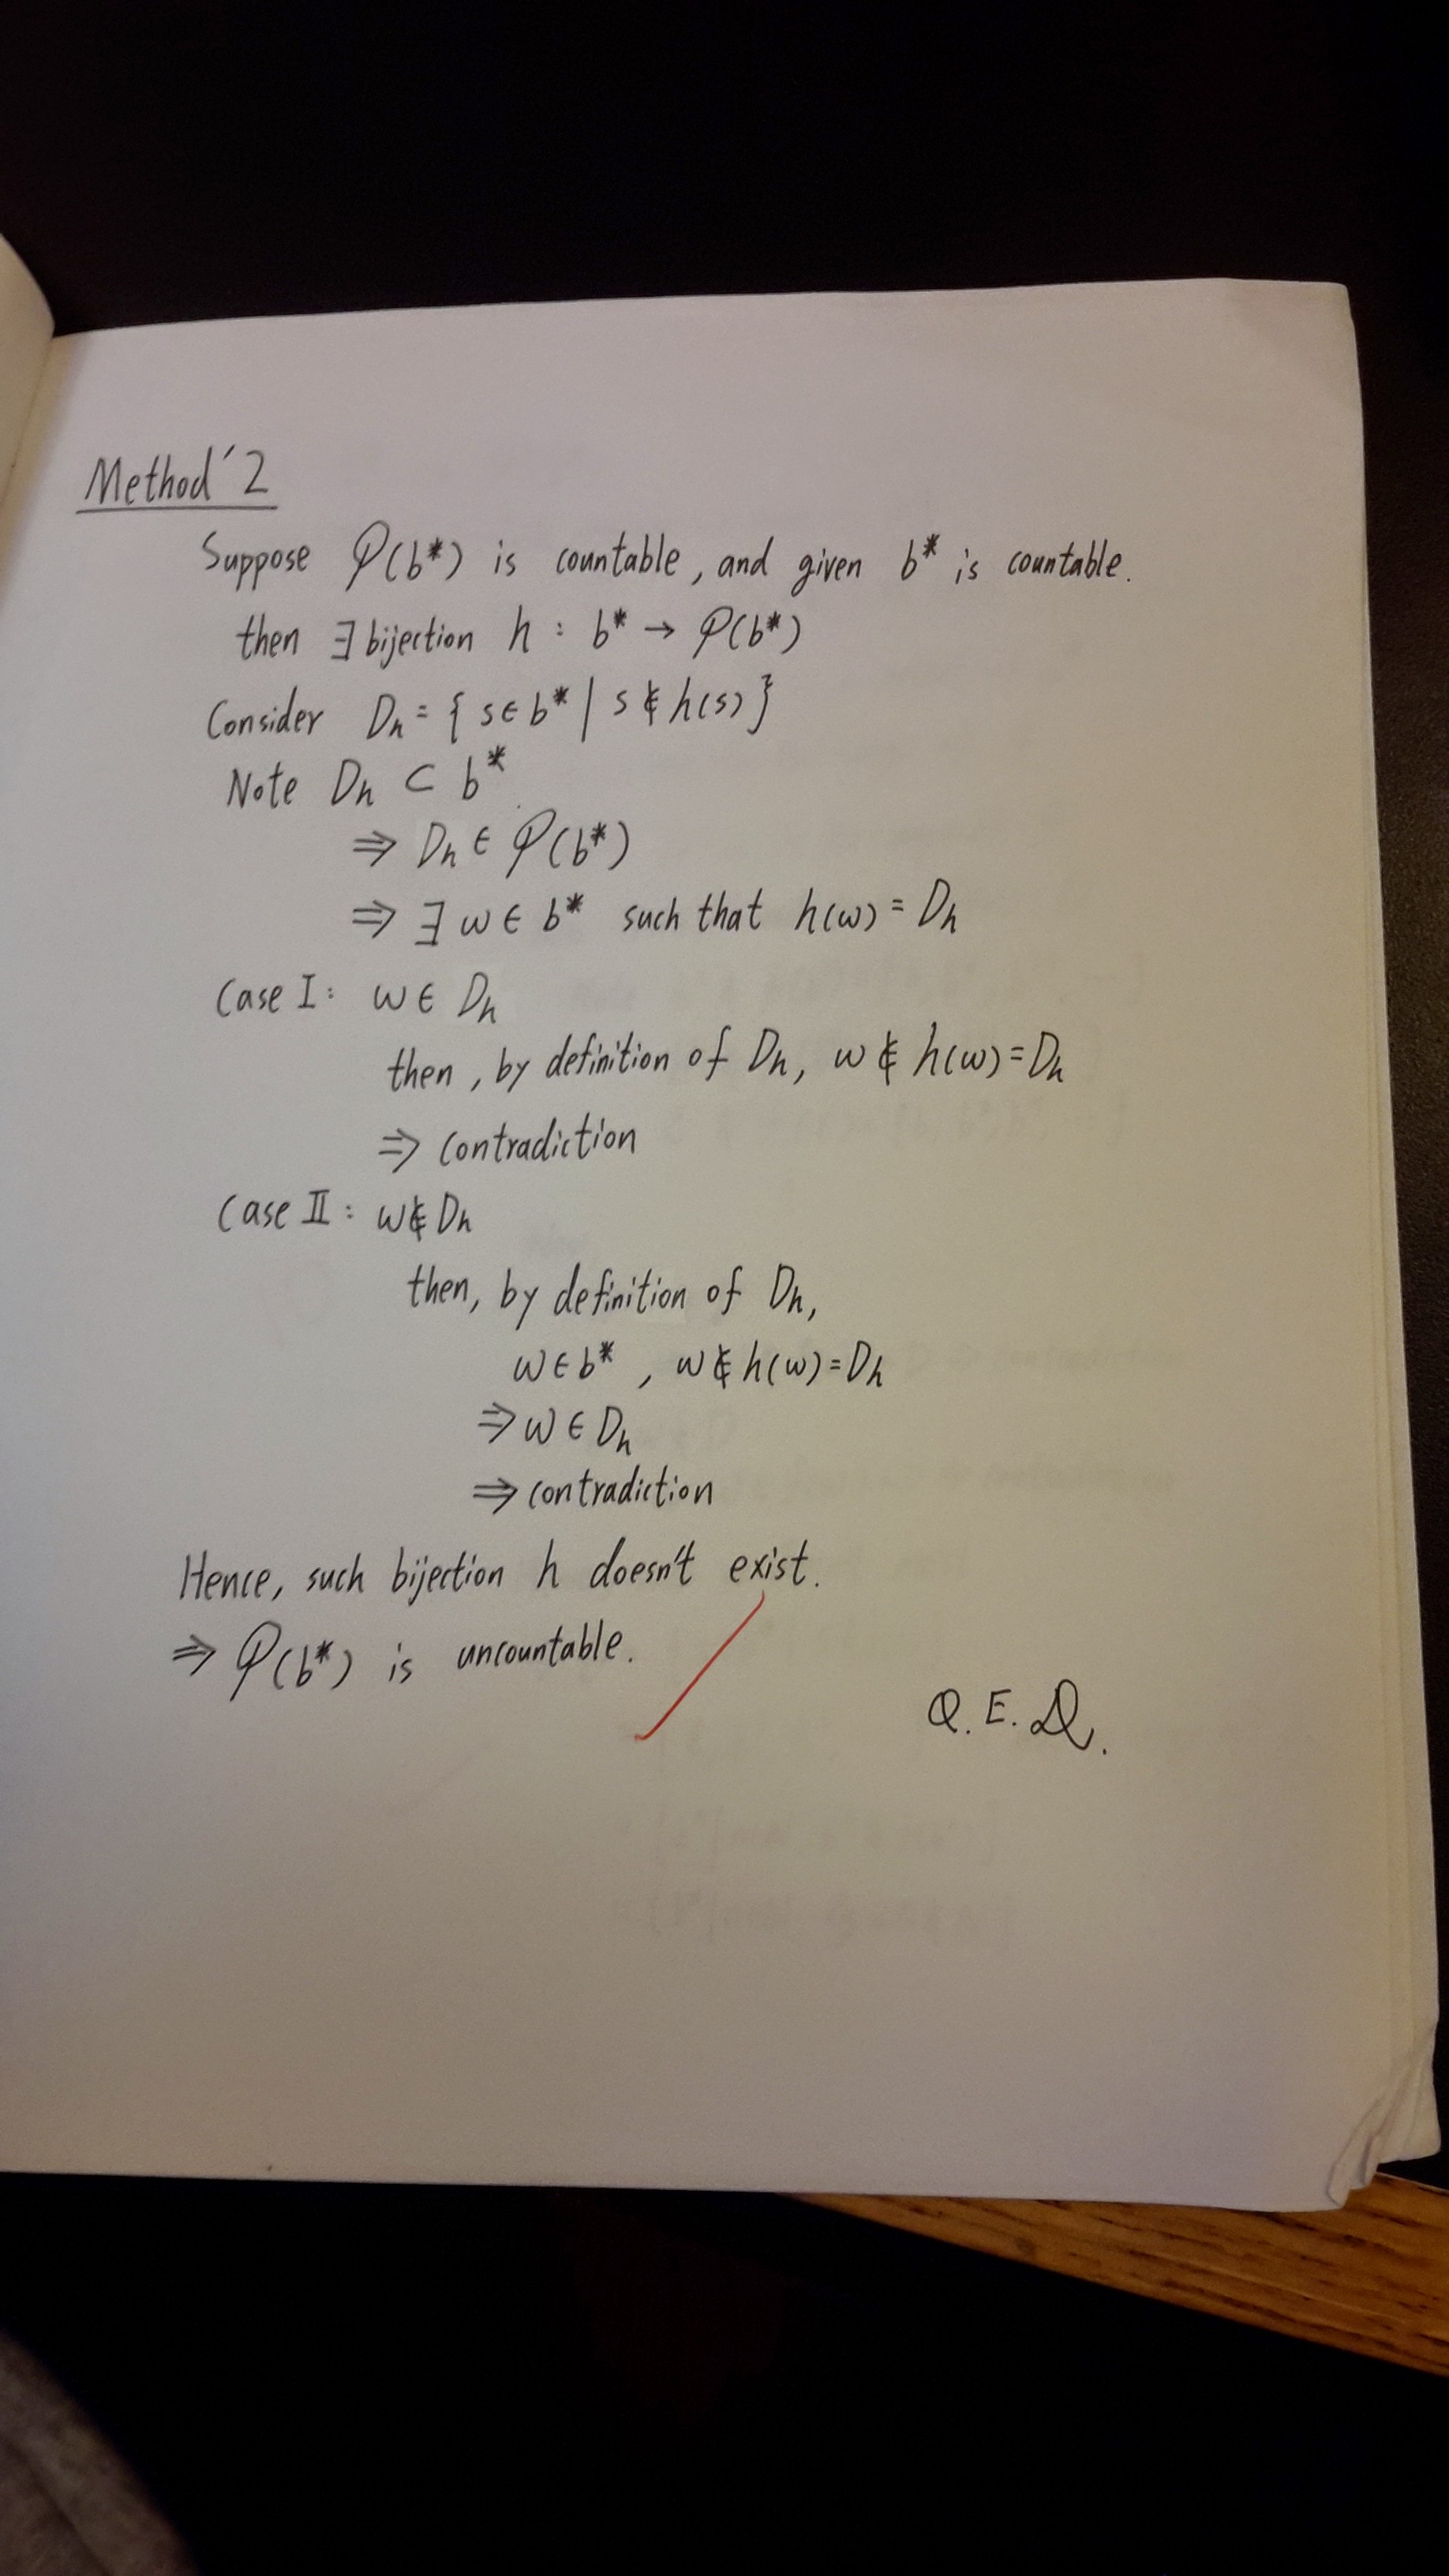 Method 2
Suppose 𝒫(b*) is countable, and given b* is countable.
then ∃ bijection h : b* → 𝒫(b*)
Consider Dₕ = { s ∈ b* | s ∉ h(s) }
Note Dₕ ⊂ b*
⇒ Dₕ ∈ 𝒫(b*)
⇒ ∃ w ∈ b* such that h(w) = Dₕ
Case I : w ∈ Dₕ
then, by definition of Dₕ, w ∉ h(w) = Dₕ
⇒ contradiction
Case II : w ∉ Dₕ
then, by definition of Dₕ,
w ∈ b* , w ∉ h(w) = Dₕ
⇒ w ∈ Dₕ
⇒ contradiction
Hence, such bijection h doesn't exist.
⇒ 𝒫(b*) is uncountable.
Q.E.D.